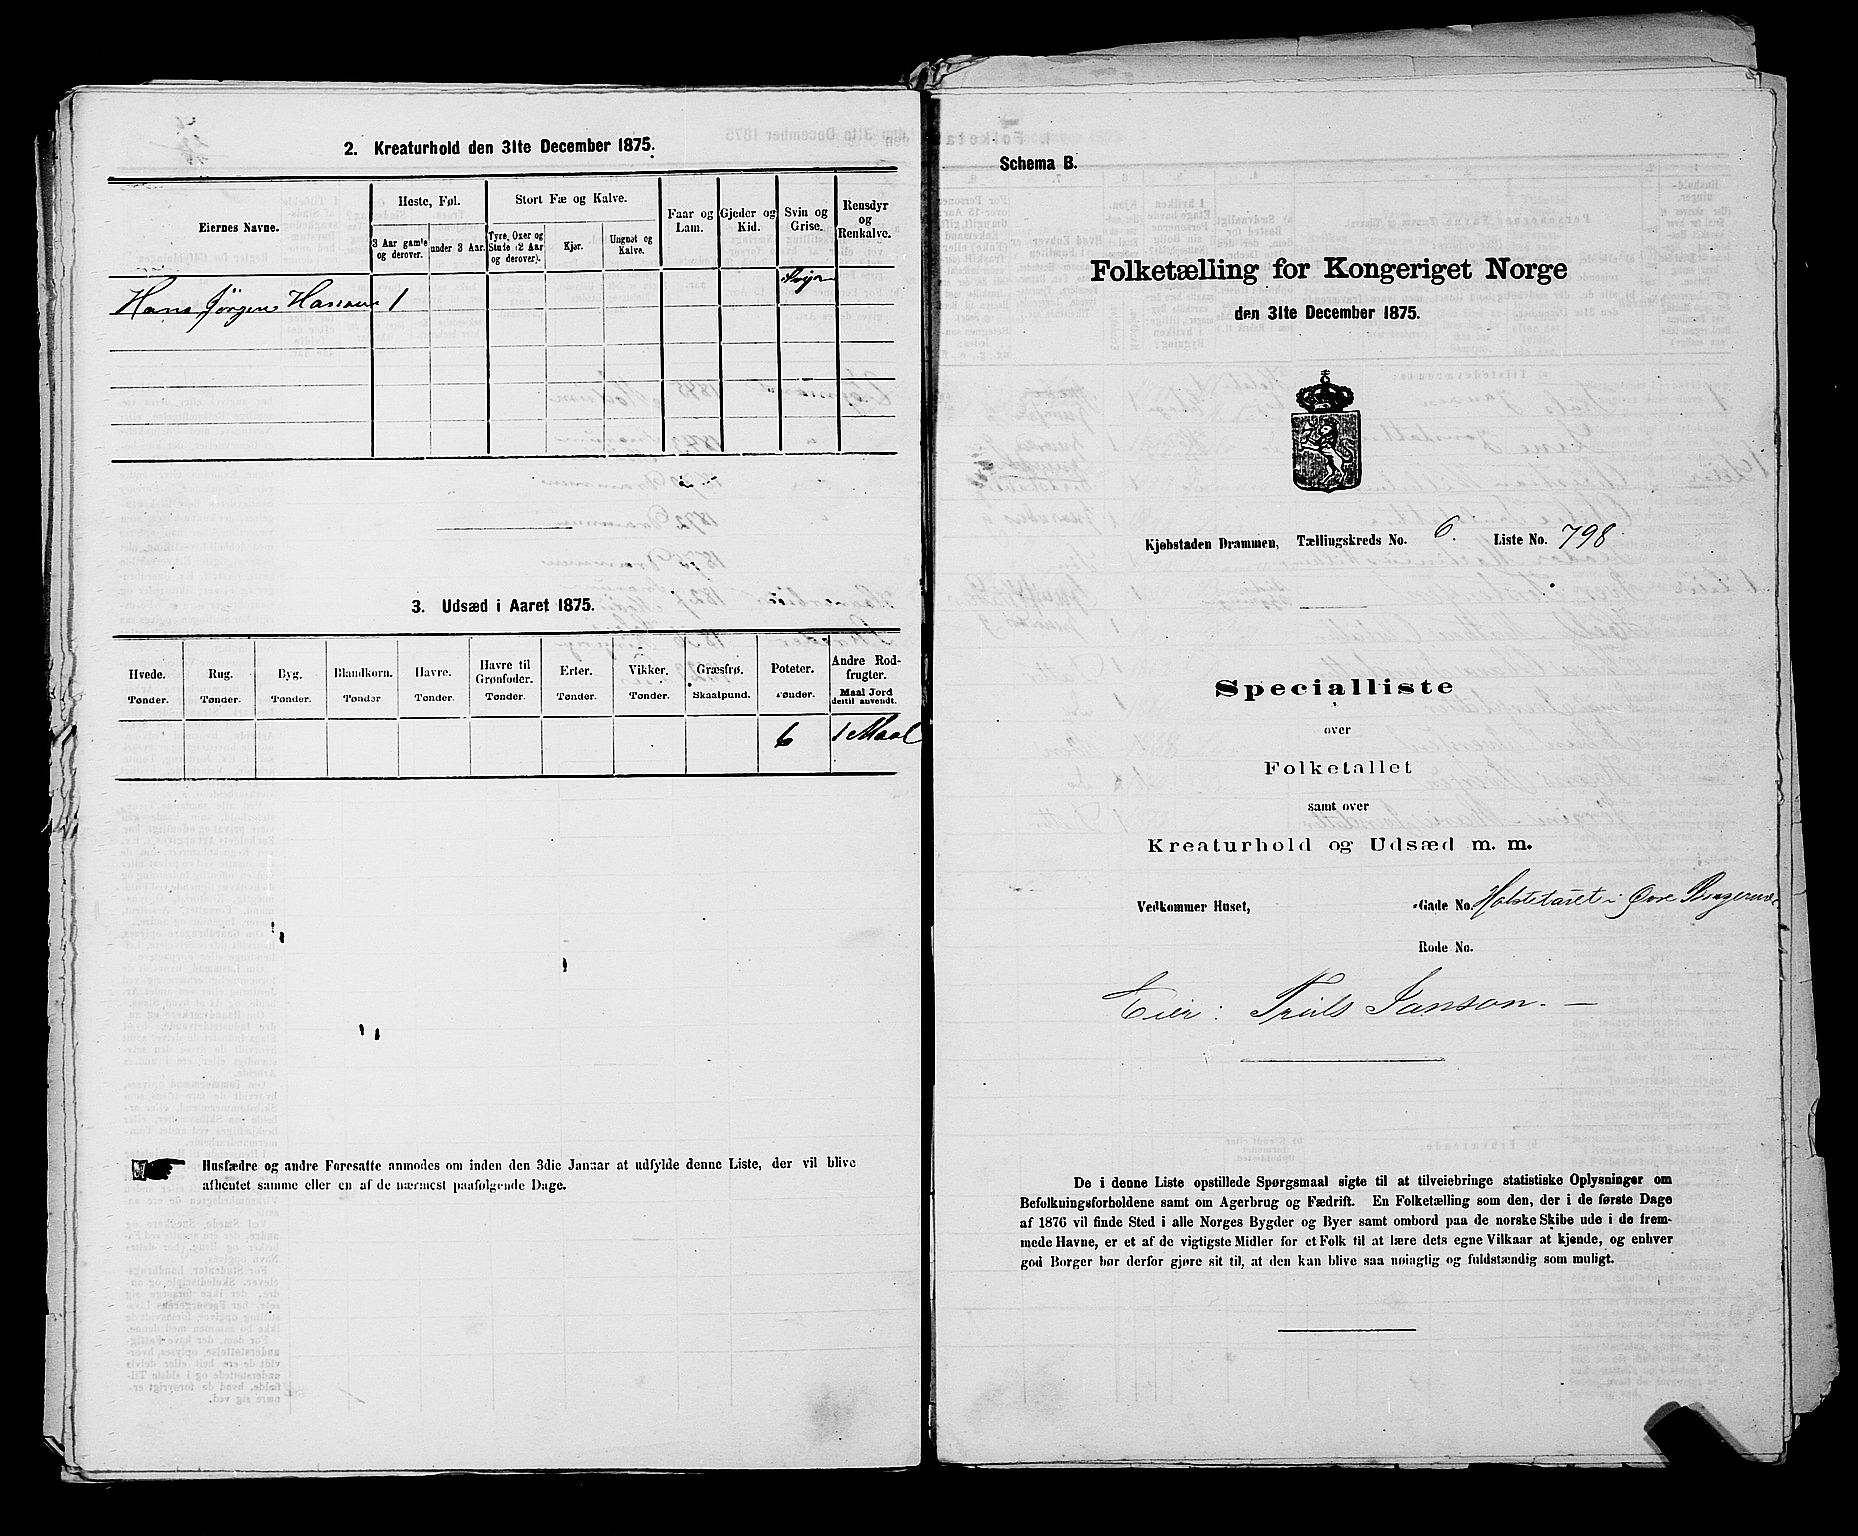 2. Kreaturhold den 31te December 1875.
Eiernes Navne.
Heste, Føl.
Stort Fæ og Kalve.
Faar og Lam.
Gjeder og Kid.
Svin og Grise.
Rensdyr og Renkalve.
3 Aar gamle og derover.
under 3 Aar.
Tyre, Oxer og Stude (2 Aar og derover).
Kjør.
Ungnøt og Kalve.
Hans Jørgen Hansen 1
3. Udsæd i Aaret 1875.
Hvede. Rug. Byg. Blandkorn. Havre. Havre til Grønfoder. Erter. Vikker. Græsfrø. Poteter. Andre Rodfrugter.
Tønder. Tønder. Tønder. Tønder Tønder. Tønder. Tønder. Tønder. Skaalpund. Tønder. Maal Jord dertil anvendt.
6 1 Maal
Husfædre og andre Foresatte anmodes om inden den 3die Januar at udfylde denne Liste, der vil blive
afhentet samme eller en af de nærmest paafølgende Dage.
Schema B.
Folketælling for Kongeriget Norge
den 31te December 1875.
Kjøbstaden Drammen, Tællingskreds No. 6. Liste No. 798
Specialliste
over
Folketallet
samt over
Kreaturhold og Udsæd m. m.
Vedkommer Huset, Gade No. i Øvre Bragernæs
Rode No.
Eier: Truls Janson. —
De i denne Liste opstillede Spørgsmaal sigte til at tilveiebringe statistiske Oplysninger om
Befolkningsforholdene samt om Agerbrug og Fædrift. En Folketælling som den, der i de første Dage
af 1876 vil finde Sted i alle Norges Bygder og Byer samt ombord paa de norske Skibe ude i de frem-
mede Havne, er et af de vigtigste Midler for et Folk til at lære dets egne Vilkaar at kjende, og enhver
god Borger bør derfor gjøre sit til, at den kan blive saa nøiagtig og fuldstændig som muligt.